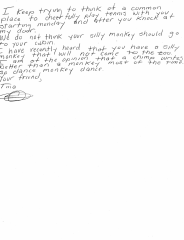 I keep trying to think of a common
place to cheerfully play tennis with you
starting monday and after you knock at
my door.
We do not think your silly monkey should go
to your cabin.
I have recently heard that you have a silly
monkey that will not come to the zoo
I am of the opinion that a chimp writes
better than a monkey most of the time
so dance, monkey dance.
Your friend,
Tina